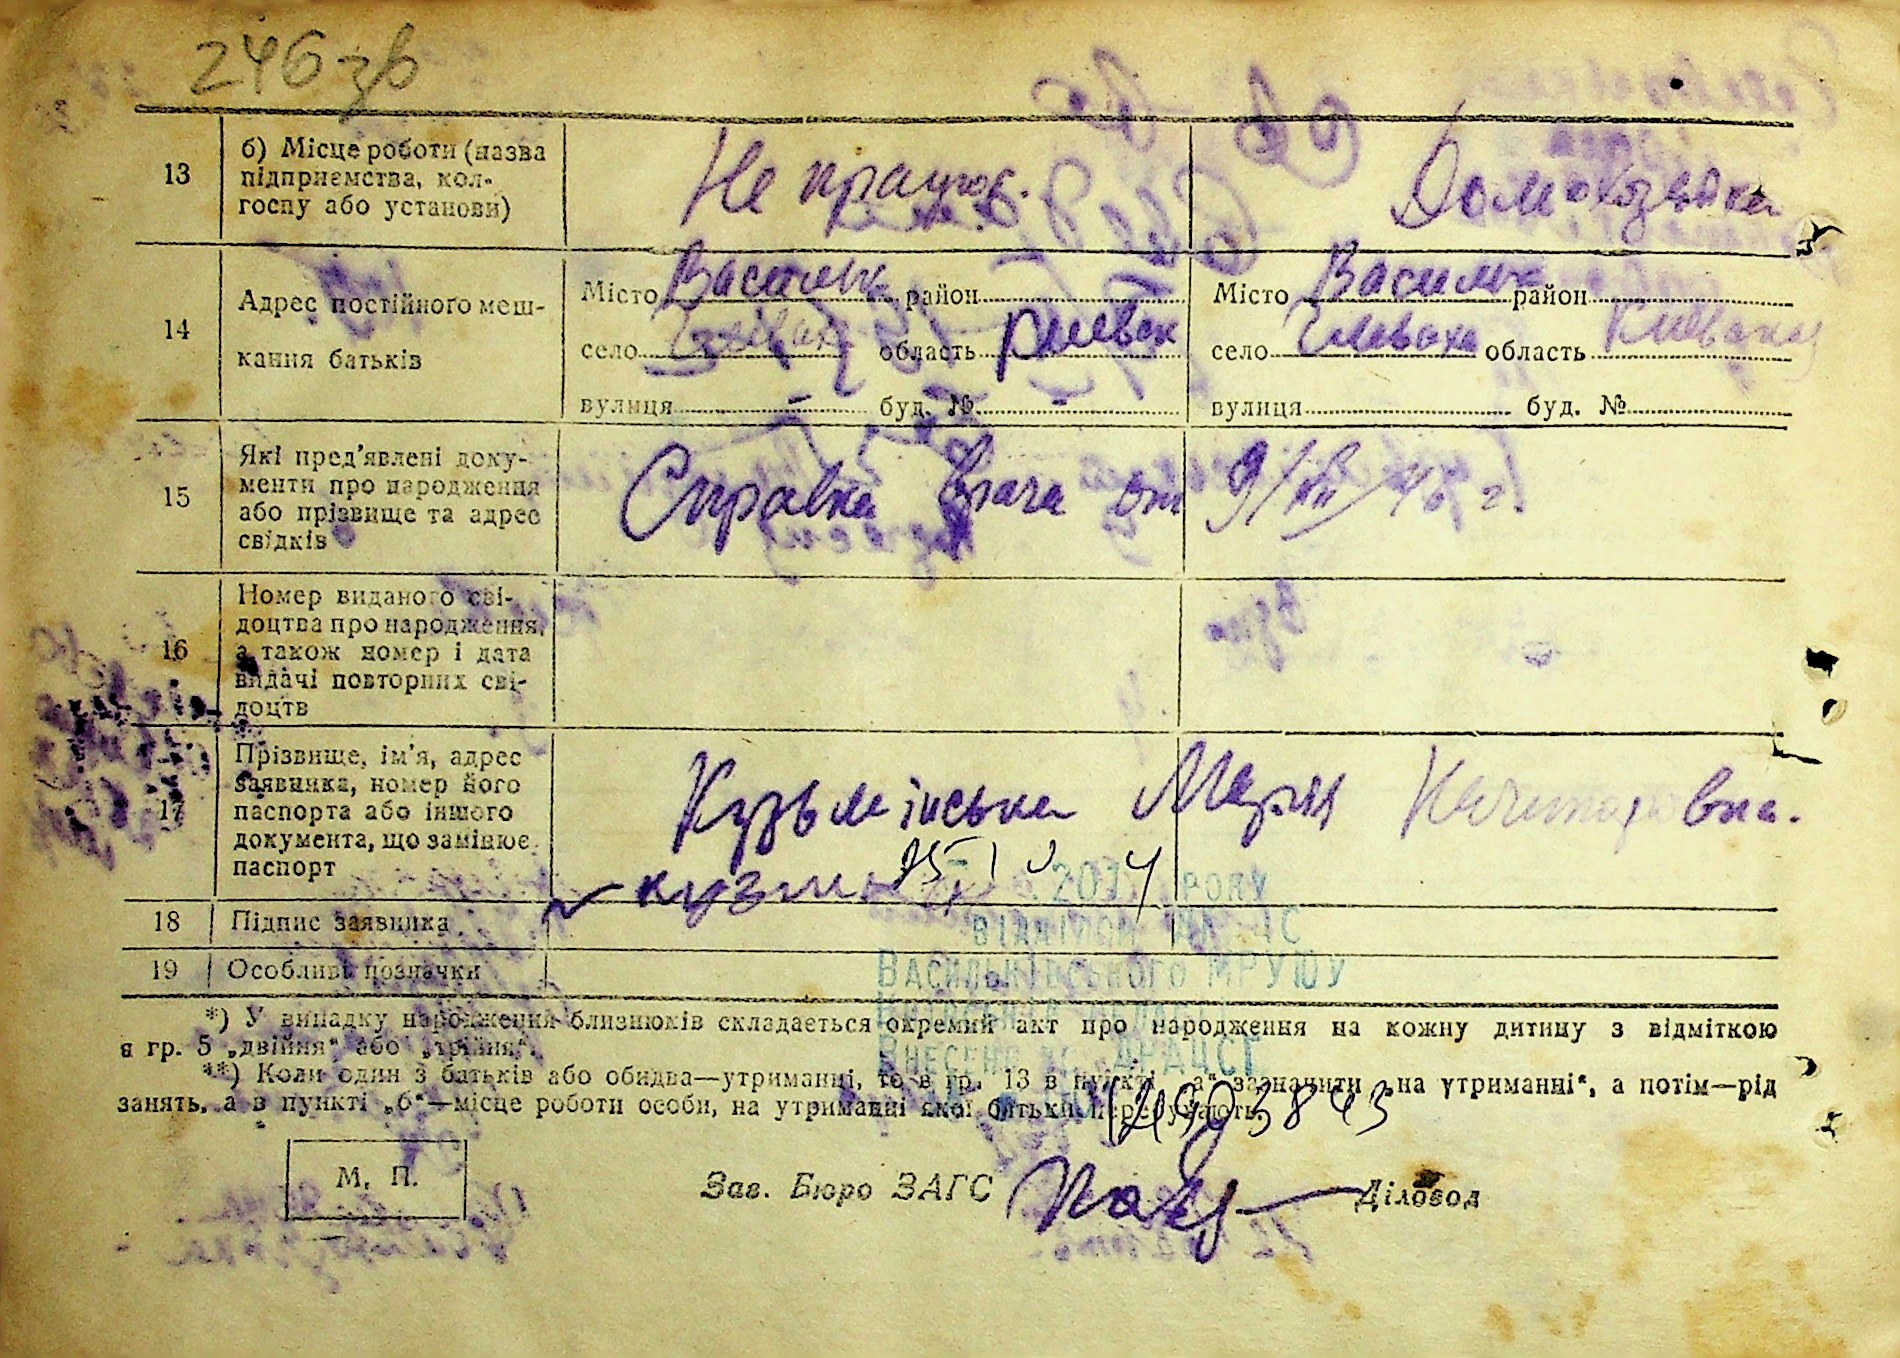 246 зв
13 б) Місце роботи (назва
підприємства, кол-
госпу або установи)
Не працюв. Домохазяйка
14 Адрес постійного меш-
кання батьків
Місто Васильк район Місто Васильк район
село область Киевск село Глеваха область Киевская
вулиця – буд. № – вулиця буд. №
15 Які пред'явлені доку-
менти про народження
або прізвище та адрес
свідків
Справка врача от 9/ г.
16 Номер виданого сві-
доцтва про народження,
а також номер і дата
видачі повторних сві-
доцтв
17 Прізвище, ім'я, адрес
заявника, номер його
паспорта або іншого
документа, що замінює
паспорт
Кузьмінська Марія
18 Підпис заявника
19 Особливі позначки
РОКУ
ВІДДІЛОМ
ВАСИЛЬКІВСЬКОГО МРУЮУ
ВНЕСЕНО ДРАЦСГ
*) У випадку народження близнюків складається окремий акт про народження на кожну дитину з відміткою
в гр. 5 „двійня“ або „трійня“.
**) Коли один з батьків або обидва—утриманці, то в гр. 13 в пункті „а“ зазначити „на утриманні“, а потім—рід
занять, а в пункті „б“—місце роботи особи, на утриманні якої батьки перебувають.
М. П.
Зав. Бюро ЗАГС Діловод